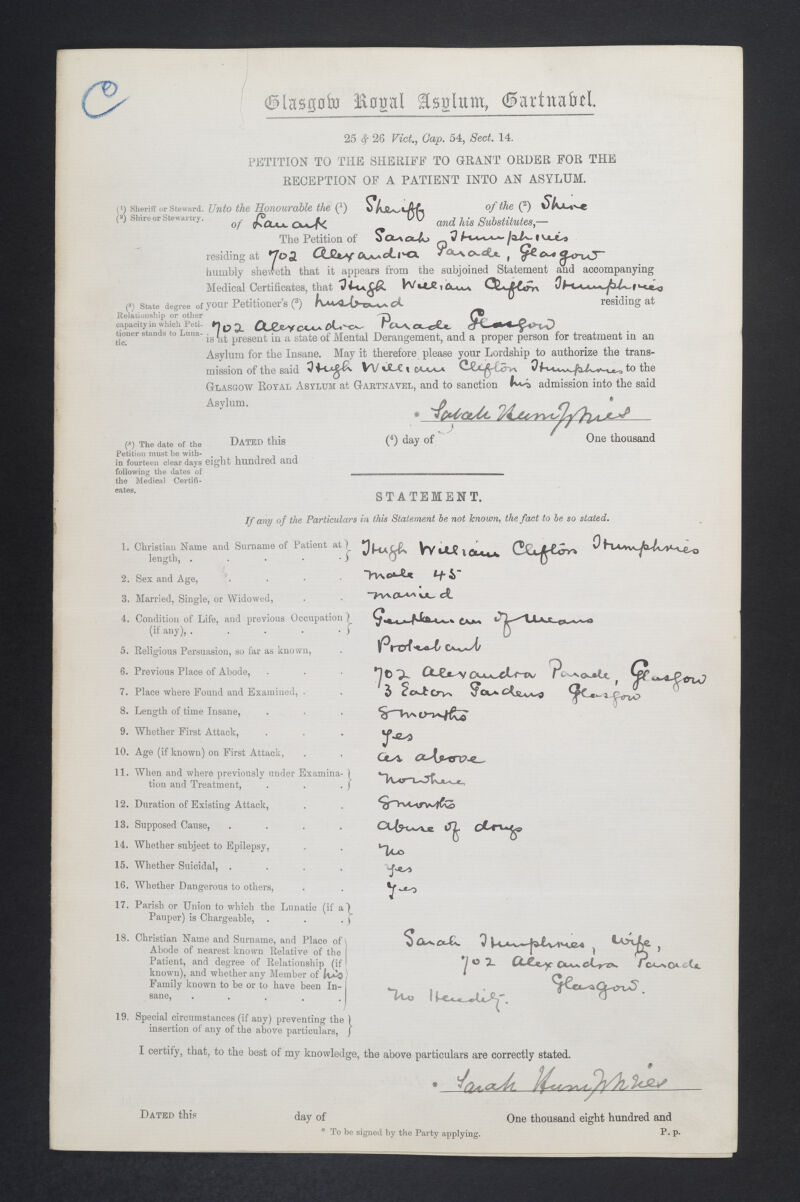 C
Glasgow Royal Asylum, Gartnavel.
25 & 26 Vict., Cap. 54, Sect. 14.
PETITION TO THE SHERIFF TO GRANT ORDER FOR THE
RECEPTION OF A PATIENT INTO AN ASYLUM.
(¹) Sheriff or Steward.
(²) Shire or Stewartry.
Unto the Honourable the (¹) Sheriff of the (²) Shire
of Lanark and his Substitutes,—
The Petition of Sarah Humphries
residing at 702 Alexandra Parade, Glasgow
humbly sheweth that it appears from the subjoined Statement and accompanying
Medical Certificates, that Hugh William Clifton Humphries
(³) State degree of
Relationship or other
capacity in which Peti-
tioner stands to Luna-
tic.
your Petitioner's (³) husband residing at
702 Alexandra Parade Glasgow
is at present in a state of Mental Derangement, and a proper person for treatment in an
Asylum for the Insane. May it therefore please your Lordship to authorize the trans-
mission of the said Hugh William Clifton Humphries to the
GLASGOW ROYAL ASYLUM at GARTNAVEL, and to sanction his admission into the said
Asylum.
* Sarah Humphries
(⁴) The date of the
Petition must be with-
in fourteen clear days
following the dates of
the Medical Certifi-
cates.
DATED this (⁴) day of One thousand
eight hundred and
STATEMENT.
If any of the Particulars in this Statement be not known, the fact to be so stated.
1. Christian Name and Surname of Patient at
length, . . . . . Hugh William Clifton Humphries
2. Sex and Age, . . . . male 45
3. Married, Single, or Widowed, . . married
4. Condition of Life, and previous Occupation
(if any), . . . . . Gentleman of means
5. Religious Persuasion, so far as known, . Protestant
6. Previous Place of Abode, . . . 702 Alexandra Parade, Glasgow
7. Place where Found and Examined, . . 3 Eaton Gardens Glasgow
8. Length of time Insane, . . . 8 months
9. Whether First Attack, . . . Yes
10. Age (if known) on First Attack, . . as above
11. When and where previously under Examina-
tion and Treatment, . . . nowhere
12. Duration of Existing Attack, . . 8 months
13. Supposed Cause, . . . . abuse of drugs
14. Whether subject to Epilepsy, . . No
15. Whether Suicidal, . . . . Yes
16. Whether Dangerous to others, . . Yes
17. Parish or Union to which the Lunatic (if a
Pauper) is Chargeable, . . .
18. Christian Name and Surname, and Place of
Abode of nearest known Relative of the
Patient, and degree of Relationship (if
known), and whether any Member of his
Family known to be or to have been In-
sane, . . . . .
Sarah Humphries, wife,
702 Alexandra Parade
Glasgow.
No Heredity.
19. Special circumstances (if any) preventing the
insertion of any of the above particulars,
I certify, that, to the best of my knowledge, the above particulars are correctly stated.
* Sarah Humphries
DATED this day of One thousand eight hundred and
* To be signed by the Party applying. P. p.